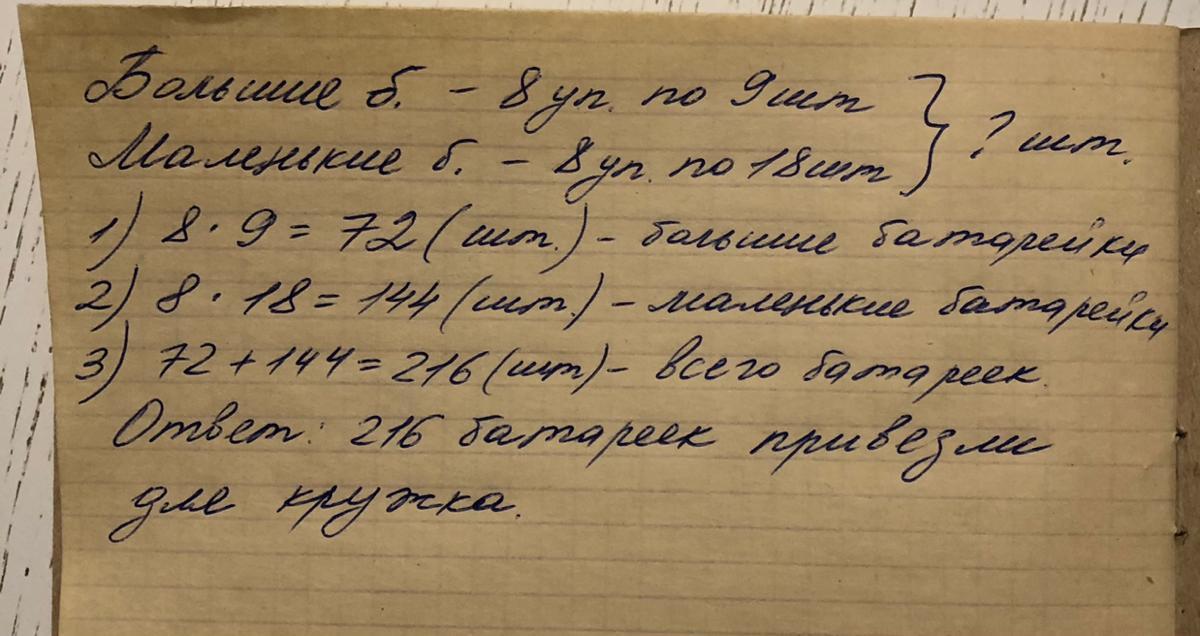 Большие б. - 8 уп. по 9 шт } ? шт.
Маленькие б. - 8 уп. по 18 шт
1) 8 · 9 = 72 (шт.) - большие батарейки
2) 8 · 18 = 144 (шт.) - маленькие батарейки
3) 72 + 144 = 216 (шт) - всего батареек.
Ответ: 216 батареек привезли
для кружка.